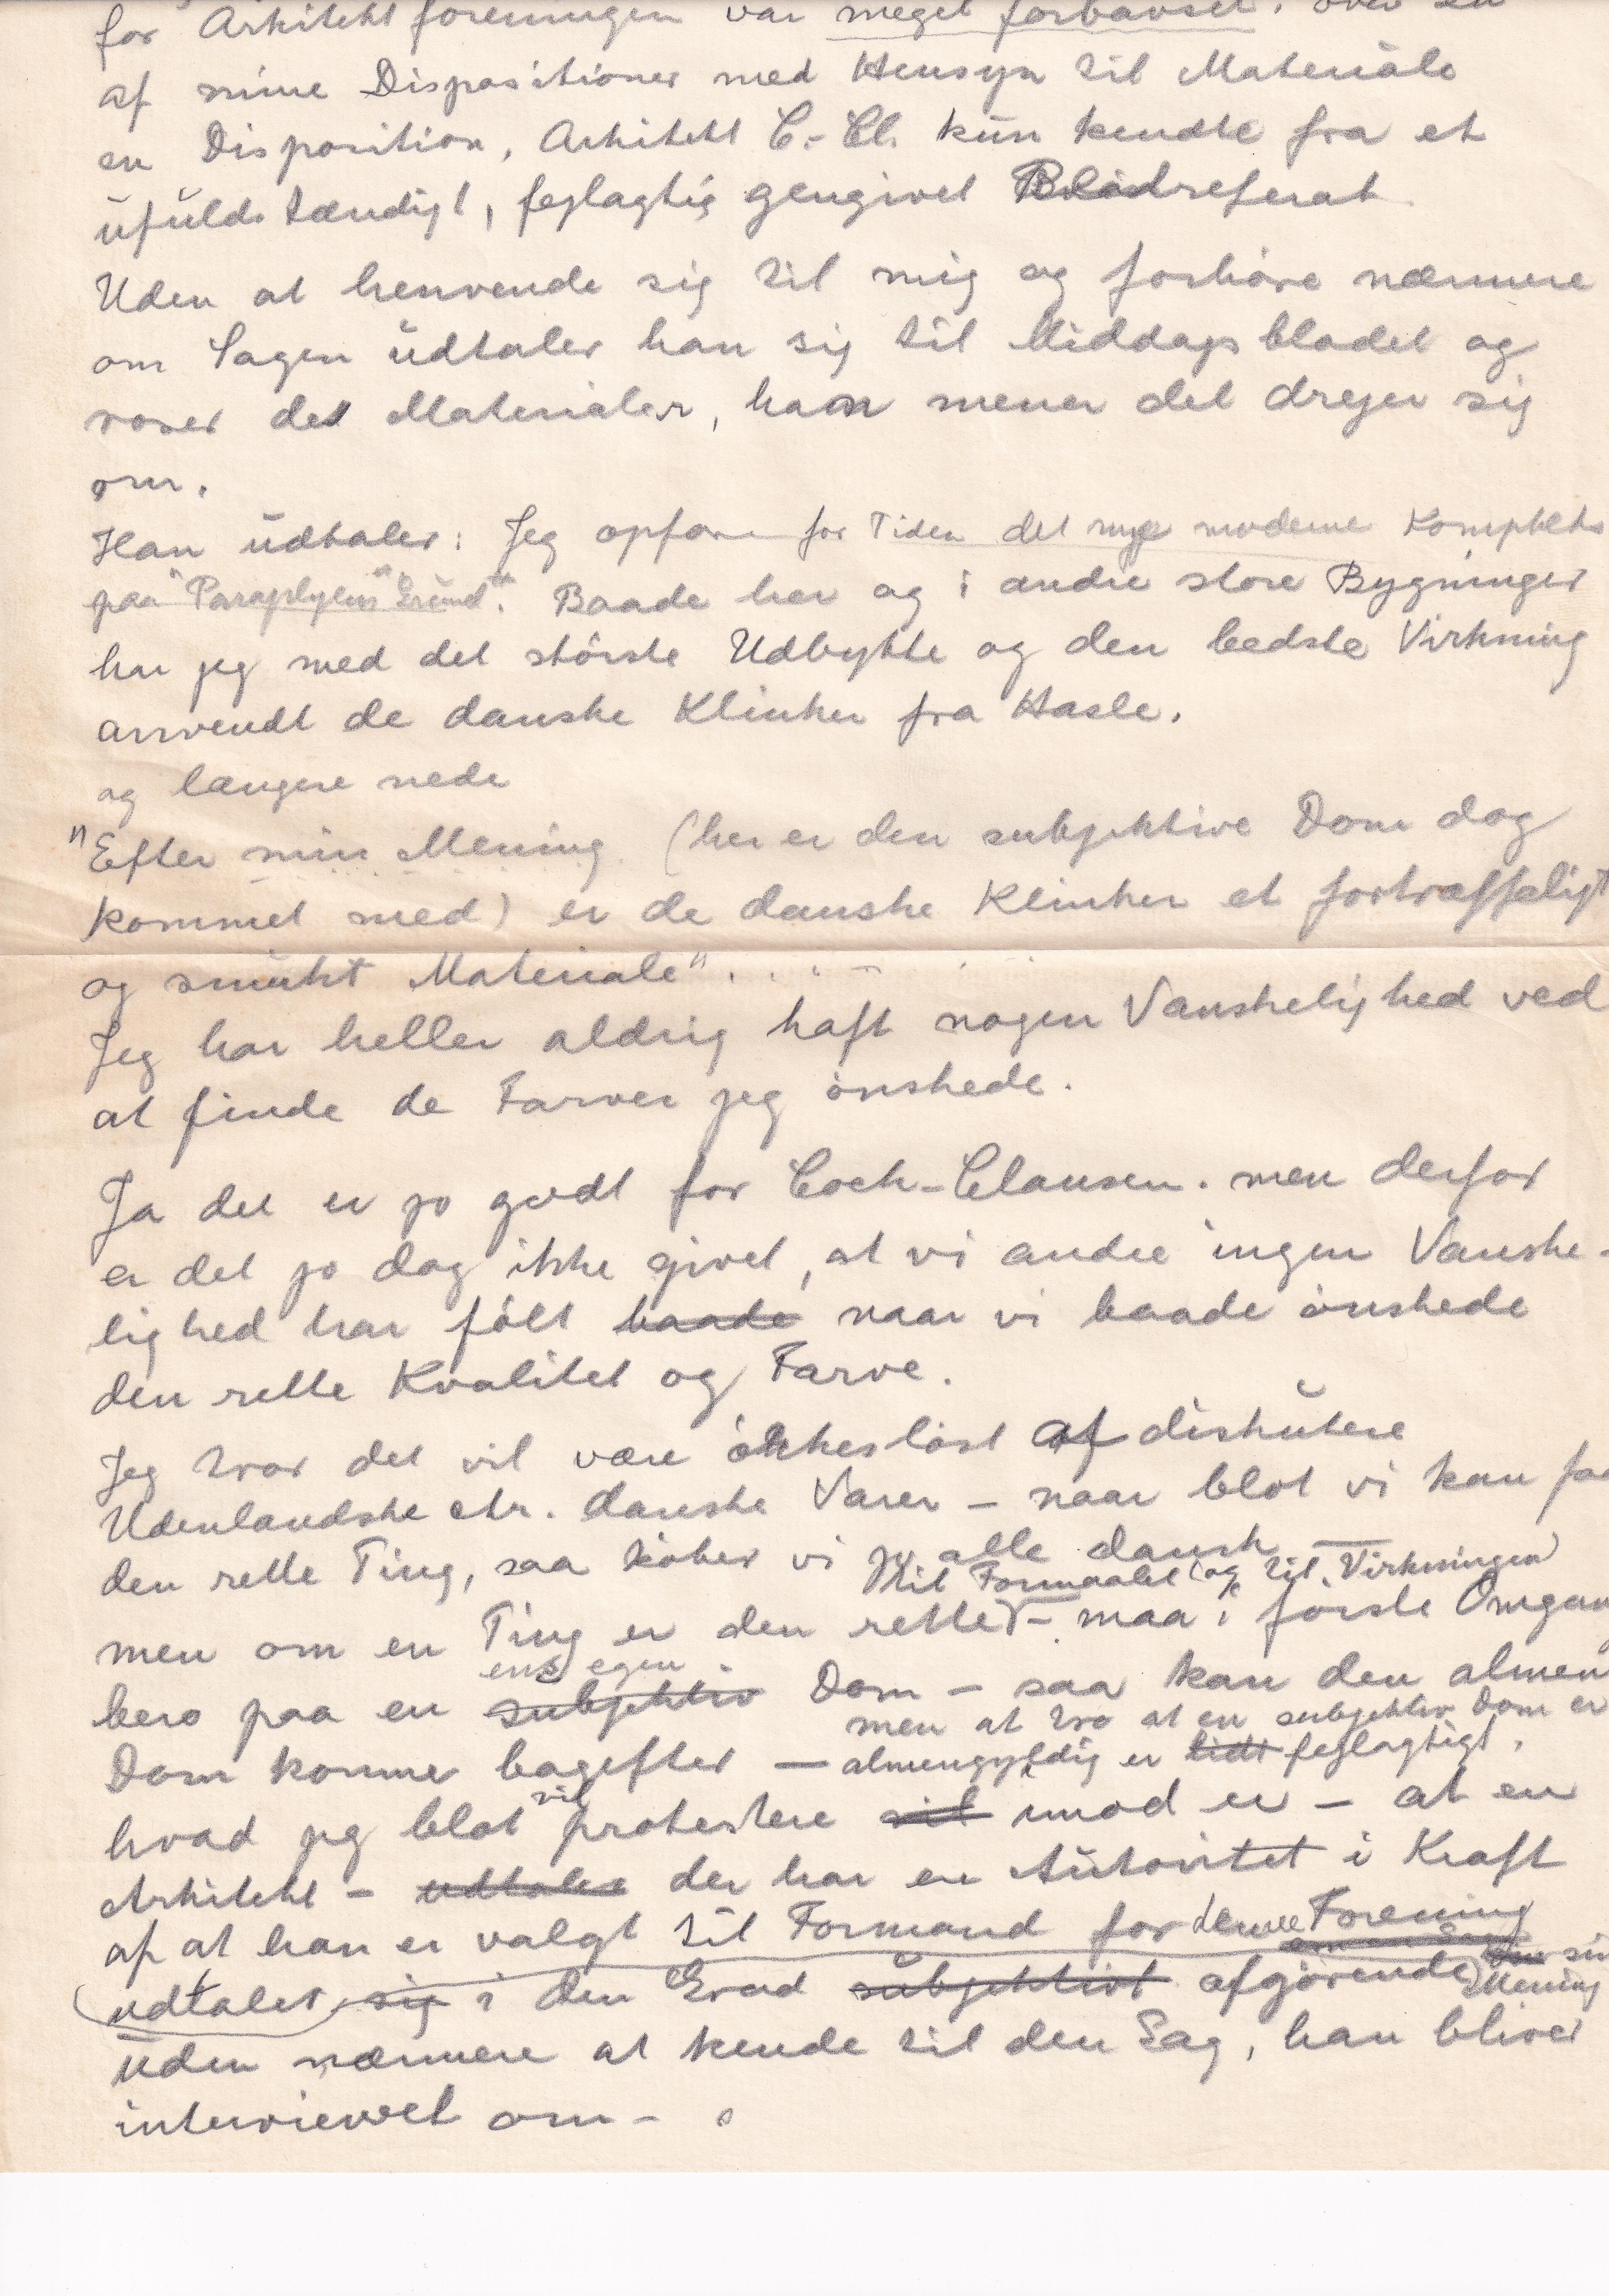 for Arkitektforeningen var meget forbavset. over en
af mine Dispositioner med Hensyn til Materiale
en Disposition, Arkitekt C.-Cl. kun kendte fra et
ufuldstændigt, fejlagtig gengivet Bladreferat
Uden at henvende sig til mig og forhøre nærmere
om Sagen udtaler han sig til Middagsbladet og
roser det Materialer, han mener det drejer sig
om.
Han udtaler: Jeg opfører for Tiden det nye moderne Kompleks
paa "Paraplyens Grund". Baade her og i andre store Bygninger
har jeg med det største Udbytte og den bedste Virkning
anvendt de danske Klinker fra Hasle.
og længere nede
"Efter min Mening (her er den subjektive Dom dog
kommet med) er de danske Klinker et fortræffeligt
og smukt Materiale".
Jeg har heller aldrig haft nogen Vanskelighed ved
at finde de Farver jeg ønskede.
Ja det er jo godt for Coch-Clausen. men derfor
er det jo dog ikke givet, at vi andre ingen Vanske-
lighed har følt baade naar vi baade ønskede
den rette Kvalitet og Farve.
Jeg tror det vil være ørkesløst at diskutere
Udenlandske ctr. danske Varer – naar blot vi kan faa
den rette Ting, saa køber vi jo alle dansk —
til Formaalet (og til Virkningen)
men om en Ting er den rette – maa i første Omgang
ens egen
bero paa en subjektiv Dom – saa kan den almen
men at tro at en subjektiv Dom er
Dom komme bagefter — almengyldig er lidt fejlagtigt.
vil
hvad jeg blot protestere vil imod er – at en
Arkitekt – udtaler der har en Autoritet i Kraft
af at han er valgt til Formand for denne Forening
sin
udtaler sig i den Grad subjektivt afgørende Mening
uden nærmere at kende til den Sag, han bliver
interviewet om –